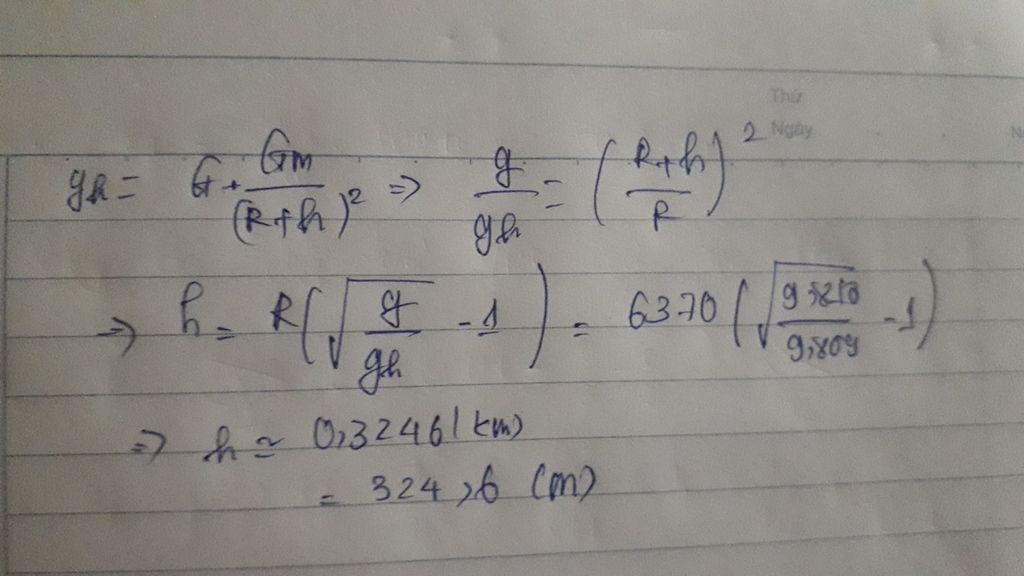 Thứ
Ngày
gh = G + Gm/(R+h)² => g/gh = (R+h/R)²
=> h = R(√g/gh - 1) = 6370 (√9,810/9,809 - 1)
=> h ≃ 0,3246 (km)
= 324,6 (m)